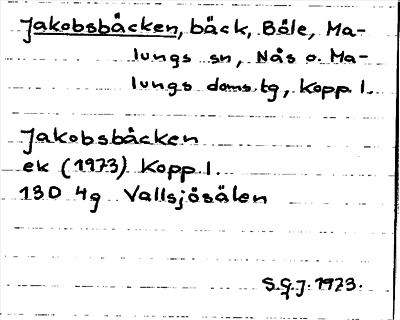 Jakobsbäcken, bäck, Båle, Ma-
lungs sn, Nås o. Ma-
lungs doms.tg, Kopp.l.
Jakobsbäcken
ek (1973) Kopp.l.
13D 4g Vallsjösälen
S.G.J. 1973.